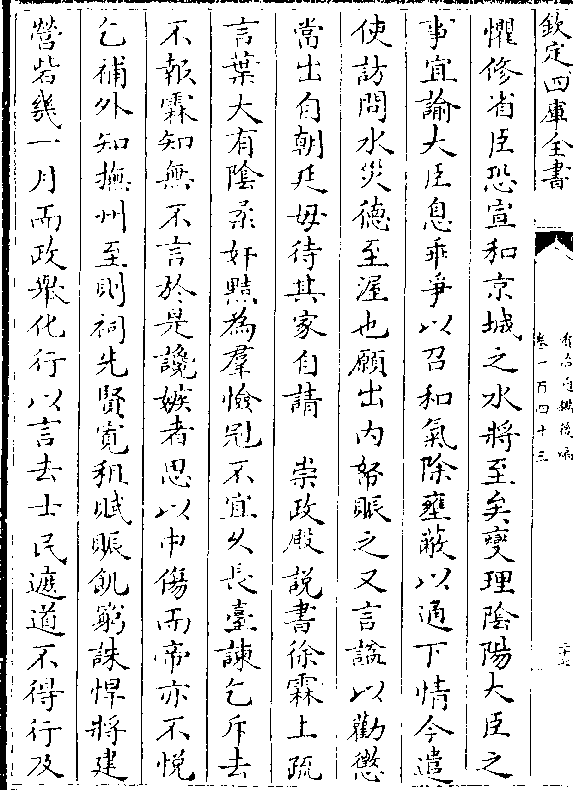 欽定四庫全書
資治通鑑後編
卷一百四十三
懼修省臣恐宣和京城之水將至矣燮理隂陽大臣之
事宜諭大臣息乖爭以召和氣除壅蔽以通下情今遣
使訪問水災德至渥也願出内帑賑之又言諡以勸懲
當出自朝廷毋待其家自請　崇政殿說書徐霖上疏
言葉大有隂柔奸黠為羣憸冠不宜久長臺諫乞斥去
不報霖知無不言於是讒嫉者思以中傷而帝亦不悦
乞補外知撫州至則祠先賢寛租賦賑飢窮誅悍將建
營砦幾一月而政舉化行以言去士民遮道不得行及